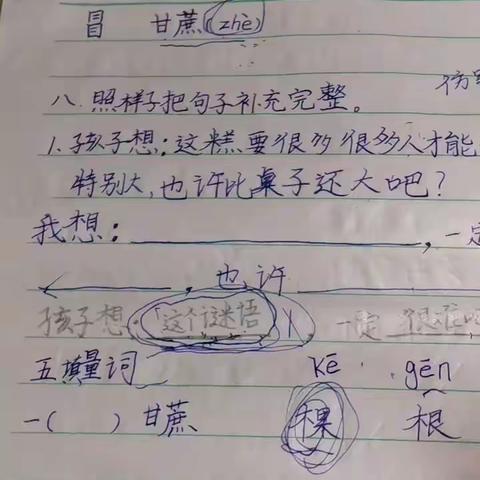 冒 甘蔗(zhè)
八.照样子把句子补充完整。
1.孩子想:这糕要很多很多人才能
特别大,也许比桌子还大吧?
我想:,一定
,也许
孩子想:「这个谜语」,一定很难吧
五填量词 kē gēn
一( )甘蔗 棵 根